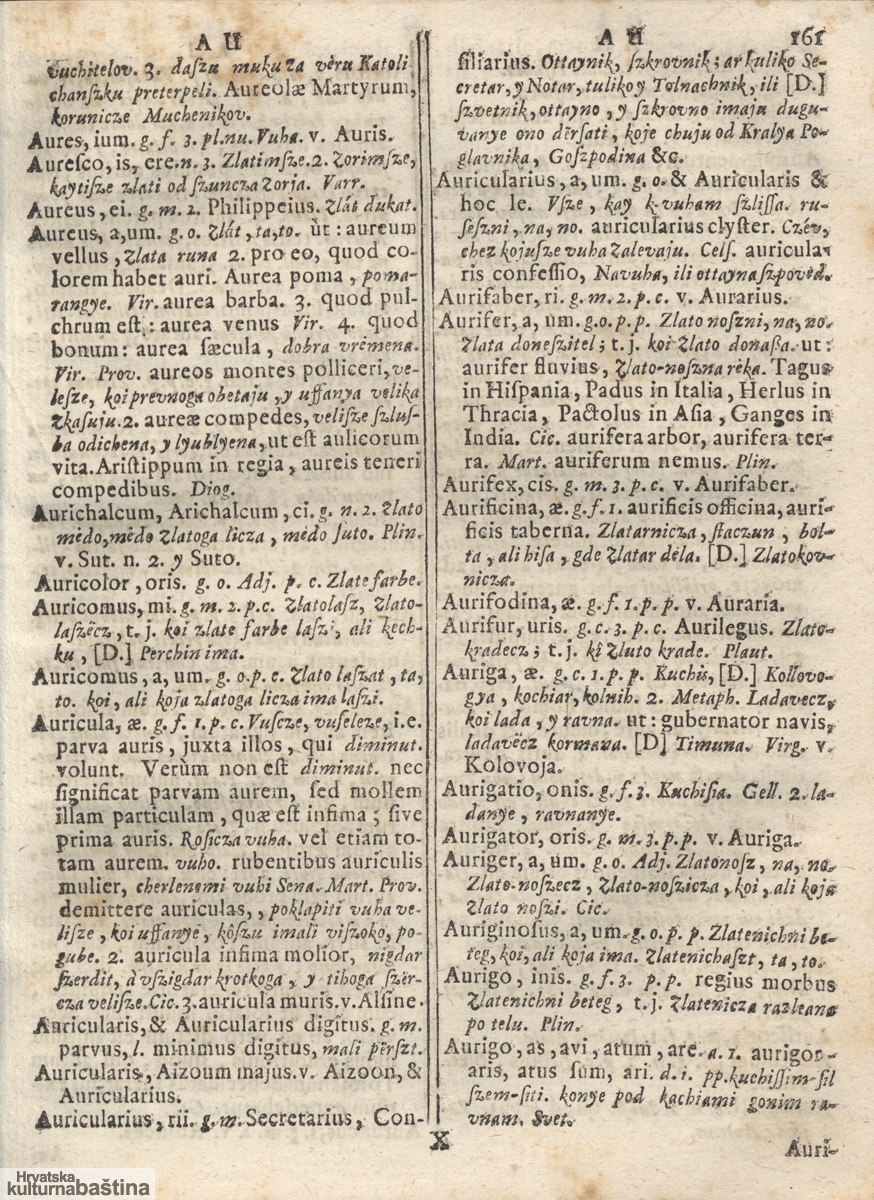 A U
vuchitelov. 3. daszu mukuza vèru Katoli
chanszku preterpeli. Aureolæ Martyrum,
korunicze Muchenikov.
Aures, ium. g. f. 3. pl. nu. Vuha. v. Auris.
Auresco, is, ere. n. 3. Zlatimsze. 2. Zorimsze,
kaytisze zlati od szuncza zorja. Varr.
Aureus, ei. g. m. 2. Philippeius. Zlát dukat.
Aureus, a, um. g. o. Zlát, ta, to. ùt: aureum
vellus, Zlata runa 2. pro eo, quod co-
lorem habet auri. Aurea poma, poma-
rangye. Vir. aurea barba. 3. quod pul-
chrum est: aurea venus Vir. 4. quod
bonum: aurea sæcula, dobra vrêmena.
Vir. Prov. aureos montes polliceri, ve-
lesze, koi prevnoga obetaju, y uffanya velika
zkasuju. 2. aureæ compedes, velisze szlus-
ba odichena, y lyublyena, ut est aulicorum
vita. Aristippum in regia, aureis teneri
compedibus. Diog.
Aurichalcum, Arichalcum, ci. g. n. 2. Zlato
mèdo, mèdo Zlatoga licza, mèdo suto. Plin.
v. Sut. n. 2. y Suto.
Auricolor, oris. g. o. Adj. p. c. Zlate farbe.
Auricomus, mi. g. m. 2. p. c. Zlatolasz, Zlato-
laszècz, t. j. koi zlate farbe laszi, ali kech-
ku, [D.] Perchin ima.
Auricomus, a, um. g. o. p. c. Zlato laszat, ta,
to. koi, ali koja zlatoga licza ima laszi.
Auricula, æ. g. f. 1. p. c. Vuscze, vuseleze, i. e.
parva auris, juxta illos, qui diminut.
volunt. Verùm non est diminut. nec
significat parvam aurem, sed mollem
illam particulam, quæ est infima; sive
prima auris. Rosicza vuha. vel etiam to-
tam aurem. vuho. rubentibus auriculis
mulier, cherlenemi vuhi Sena. Mart. Prov.
demittere auriculas, poklapiti vuha ve-
lisze, koi uffanye, kôszu imali viszoko, po-
gube. 2. auricula infima molior, nigdar
szerdit, à vszigdar krotkoga, y tihoga szèr-
cza velisze. Cic. 3. auricula muris. v. Alsine.
Auricularis, & Auricularius digitus. g. m.
parvus, l. minimus digitus, mali pêrszt.
Auricularis, Aizoum majus. v. Aizoon, &
Auricularius.
Auricularius, rii. g. m. Secretarius, Con-
X
A U 161
siliarius. Ottaynik, szkrovnik; ar kuliko Se-
cretar, y Notar, tuliko y Tolnachnik, ili [D.]
szvetnik, ottayno, y szkrovno imaju dugu-
vanye ono dèrsati, koje chuju od Kralya Po-
glavnika, Goszpodina &c.
Auricularius, a, um. g. o. & Auricularis &
hoc le. Vsze, kay k vuham szlissa. ru-
seszni, na, no. auricularius clyster. Czév,
chez kojusze vuha zalevaju. Cels. auricula-
ris confessio, Navuha, ili ottayna szpovèd.
Aurifaber, ri. g. m. 2. p. c. v. Aurarius.
Aurifer, a, um. g. o. p. p. Zlato noszni, na, no.
Zlata doneszitel; t. j. koi Zlato donaßa. ut:
aurifer fluvius, Zlato-noszna rèka. Tagus
in Hispania, Padus in Italia, Herlus in
Thracia, Pactolus in Asia, Ganges in
India. Cic. aurifera arbor, aurifera ter-
ra. Mart. auriferum nemus. Plin.
Aurifex, cis. g. m. 3. p. c. v. Aurifaber.
Aurificina, æ. g. f. 1. aurificis officina, auri-
ficis taberna. Zlatarnicza, staczun, bol-
ta, ali hisa, gde Zlatar dèla. [D.] Zlatokov-
nicza.
Aurifodina, æ. g. f. 1. p. p. v. Auraria.
Aurifur, uris. g. c. 3. p. c. Aurilegus. Zlato-
kradecz; t. j. kî Zluto krade. Plaut.
Auriga, æ. g. c. 1. p. p. Kuchis, [D.] Kollovo-
gya, kochiar, kolnih. 2. Metaph. Ladavecz,
koi lada, y ravna. ut: gubernator navis,
ladavècz kormana. [D] Timuna. Virg. v.
Kolovoja.
Aurigatio, onis. g. f. 3. Kuchisia. Gell. 2. la-
danye, ravnanye.
Aurigator, oris. g. m. 3. p. p. v. Auriga.
Auriger, a, um. g. o. Adj. Zlatonosz, na, no.
Zlato-noszecz, Zlato-noszicza, koi, ali koja
Zlato noszi. Cic.
Auriginosus, a, um. g. o. p. p. Zlatenichni be-
teg, koi, ali koja ima. Zlatenichaszt, ta, to.
Aurigo, inis. g. f. 3. p. p. regius morbus
Zlatenichni beteg, t. j. Zlatenicza razleana
po telu. Plin.
Aurigo, as, avi, atum, are. a. 1. aurigor-
aris, atus sum, ari. d. 1. pp. kuchissim-sil
szem-siti. konye pod kachiami gonim ra-
vnam. Svet.
Auri-
Hrvatska
kulturnabaština